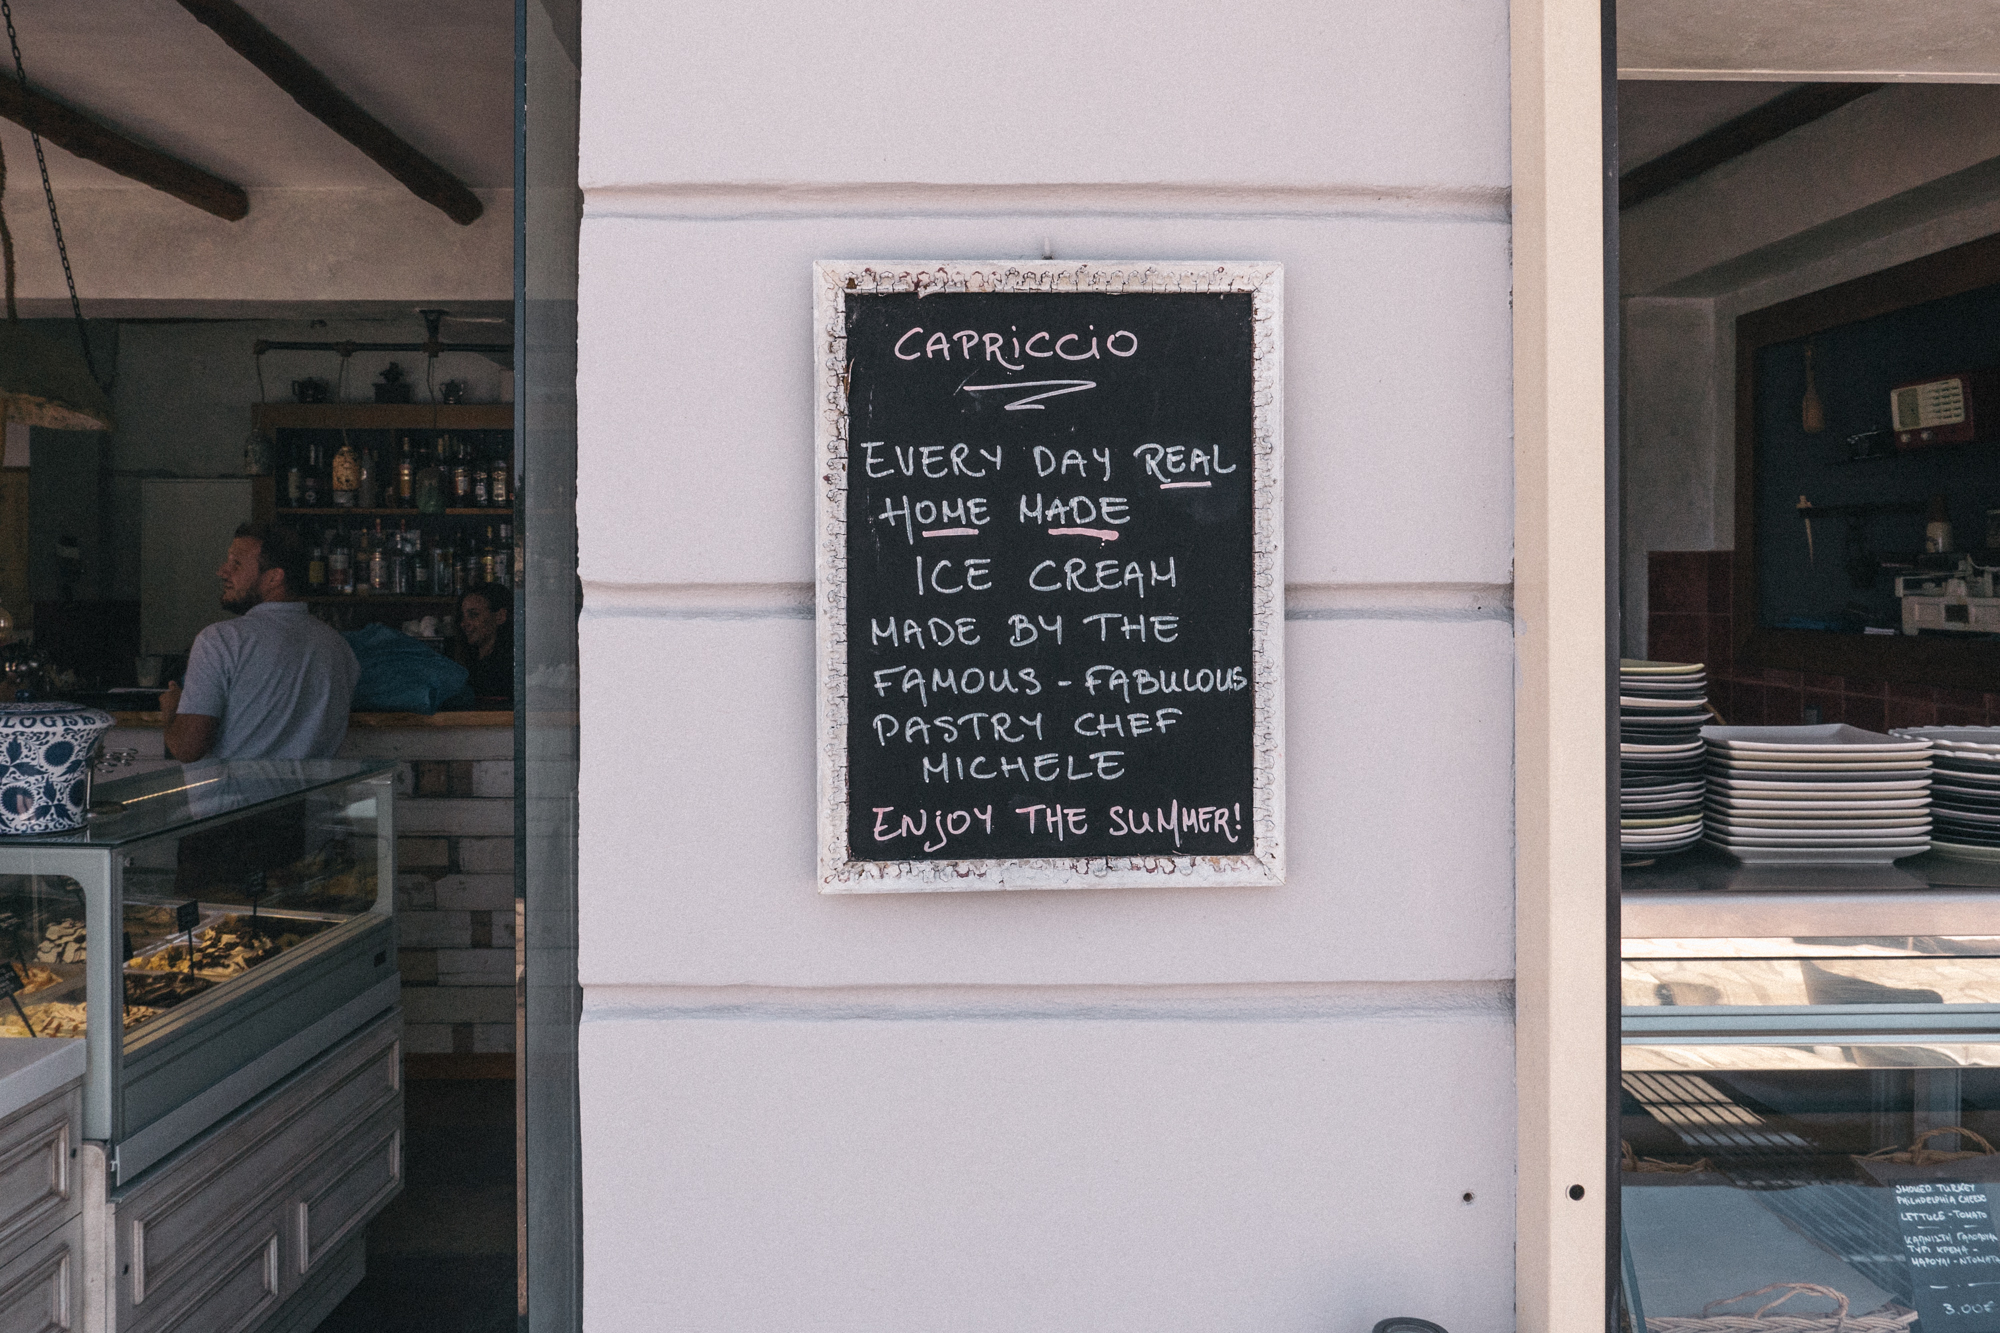 CAPRICCIO
EVERY DAY REAL
HOME MADE
ICE CREAM
MADE BY THE
FAMOUS - FABULOUS
PASTRY CHEF
MICHELE
ENJOY THE SUMMER!
SMOKED TURKEY
PHILADELPHIA CHEESE
LETTUCE - TOMATO
ΚΑΠΝΙΣΤΗ
ΤΥΡΙ ΚΡΕΜΑ -
ΜΑΡΟΥΛΙ - ΝΤΟΜΑΤΑ
3.00€